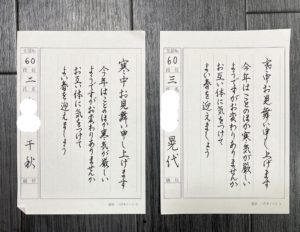 60
二
千秋
寒中お見舞い申し上げます
今年はことのほか寒気が厳しい
ようですがお変わりありませんか
お互い体に気をつけて
よい春を迎えましょう
60
三
晃代
寒中お見舞い申し上げます
今年はことのほか寒気が厳しい
ようですがお変わりありませんか
お互い体に気をつけて
よい春を迎えましょう